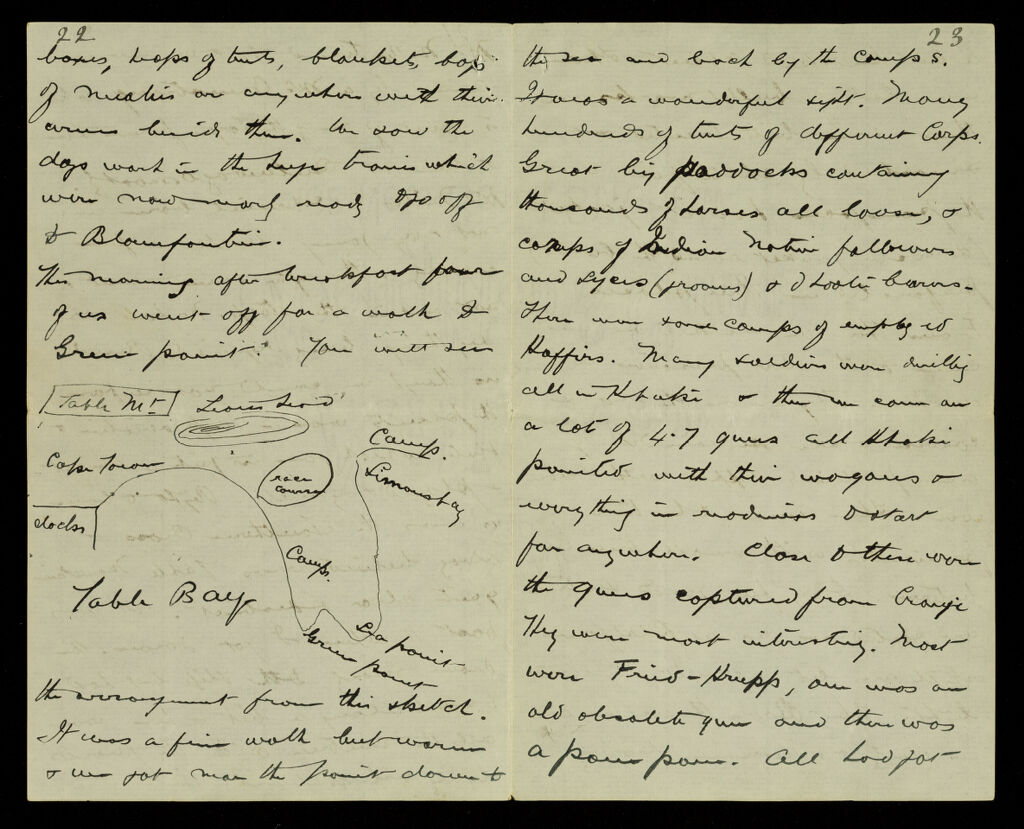 22
boxes, heaps of tents, blankets, bags
of mealies or anywhere with their
arms beside them. We saw the
days work in the huge trains which
were now nearly ready to go off
to Blomfontein.
This morning after breakfast four
of us went off for a walk to
Green point. You will see
Table Mt Lions head
Camp.
Cape Town
race
course
Simonsbay
docks
Camp.
Table Bay
Sea point
Green point
the arrangement from this sketch.
It was a fine walk but warm
& we got near the point down to
23
the sea and back by the camps.
It was a wonderful sight. Many
hundreds of tents of different Corps.
Great big paddocks containing
thousands of horses all loose, &
camps of Indian Native followers
and Syces (grooms) & dhoolie bearers -
There were some camps of employed
Kaffirs. Many soldiers were drilling
all in Khaki & then we came on
a lot of 4.7 guns all Khaki
painted with their wagons &
everything in readiness to start
for anywhere. Close to these were
the guns captured from Cronje
They were most interesting. Most
were Fried - Krupp, one was an
old obsolete gun and there was
a pom pom. All had got